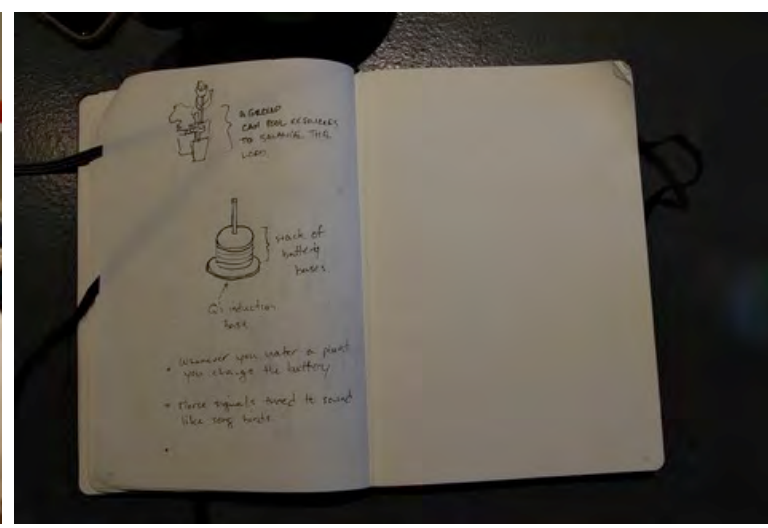 A GROUP
CAN POOL RESOURCES
TO BALANCE THE
LOAD.
stack of
battery
bases
Qi induction
base
• Whenever you water a plant
you change the battery
• Morse signals tuned to sound
like song birds.
•